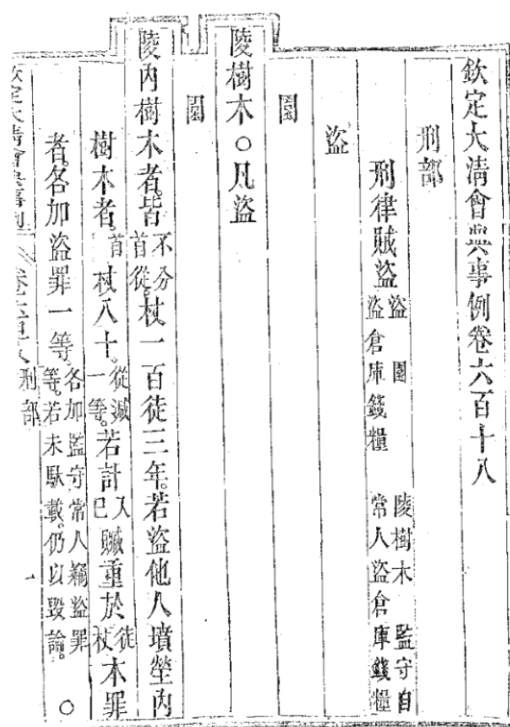 欽定大清會典事例卷六百十八
刑部
刑律賊盜盜園陵樹木 監守自盜倉庫錢糧 常人盜倉庫錢糧
盜
園
陵樹木○凡盜
園
陵內樹木者皆不分首從杖一百徒三年若盜他人墳塋內
樹木者首杖八十從減一等若計入己贓重於徒杖本罪
者各加盜罪一等各加監守常人竊盜罪一等若未馱載仍以毀論○
欽定大清會典事例 卷六百十八 刑部 一